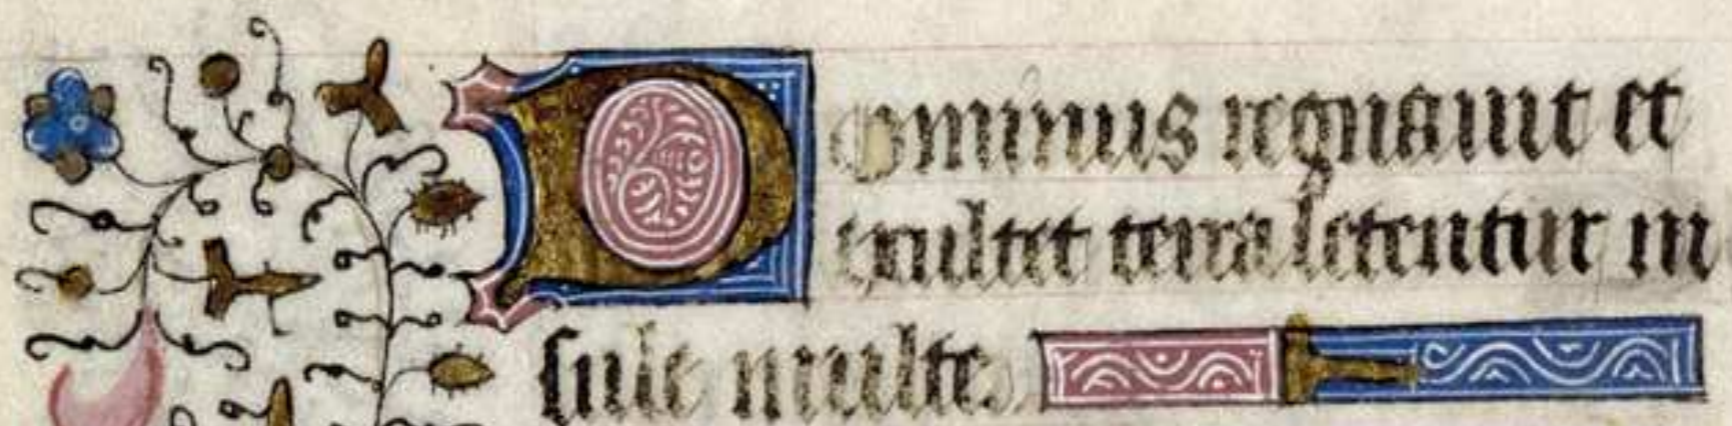 Dominus regnauit et
exultet terra letentur in
sule multe.